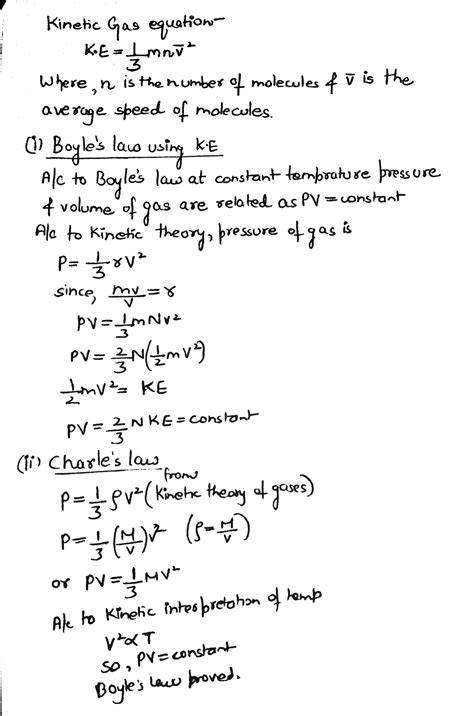 Kinetic Gas equation-
K.E = 1/3 mn v̄²
Where, n is the number of molecules & v̄ is the
average speed of molecules.
(i) Boyle's law using K.E
A/c to Boyle's law at constant temprature pressure
& volume of gas are related as PV = constant
A/c to Kinetic theory, pressure of gas is
P = 1/3 γV²
since, mv/V = γ
PV = 1/3 mNv²
PV = 2/3 N(1/2 mv²)
1/2 mV² = KE
PV = 2/3 N KE = constant
(ii) Charle's law
P = 1/3 ρv² (from Kinetic theory of gases)
P = 1/3 (M/V) v² (ρ = M/V)
or PV = 1/3 MV²
A/c to Kinetic interpretation of temp
V² ∝ T
so, PV = constant
Boyle's law proved.